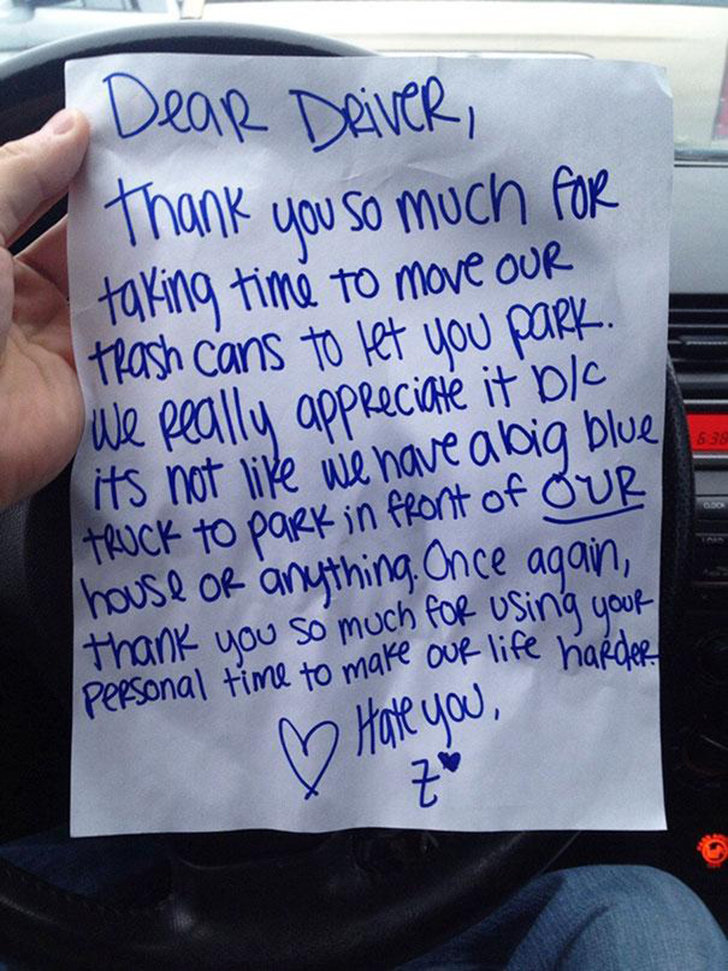 Dear Driver,
Thank you so much for
taking time to move our
trash cans to let you park.
We really appreciate it b/c
its not like we have a big blue
truck to park in front of OUR
house or anything. Once again,
thank you so much for using your
personal time to make our life harder.
♡ Hate you,
Z ♥
6:38
CLOCK